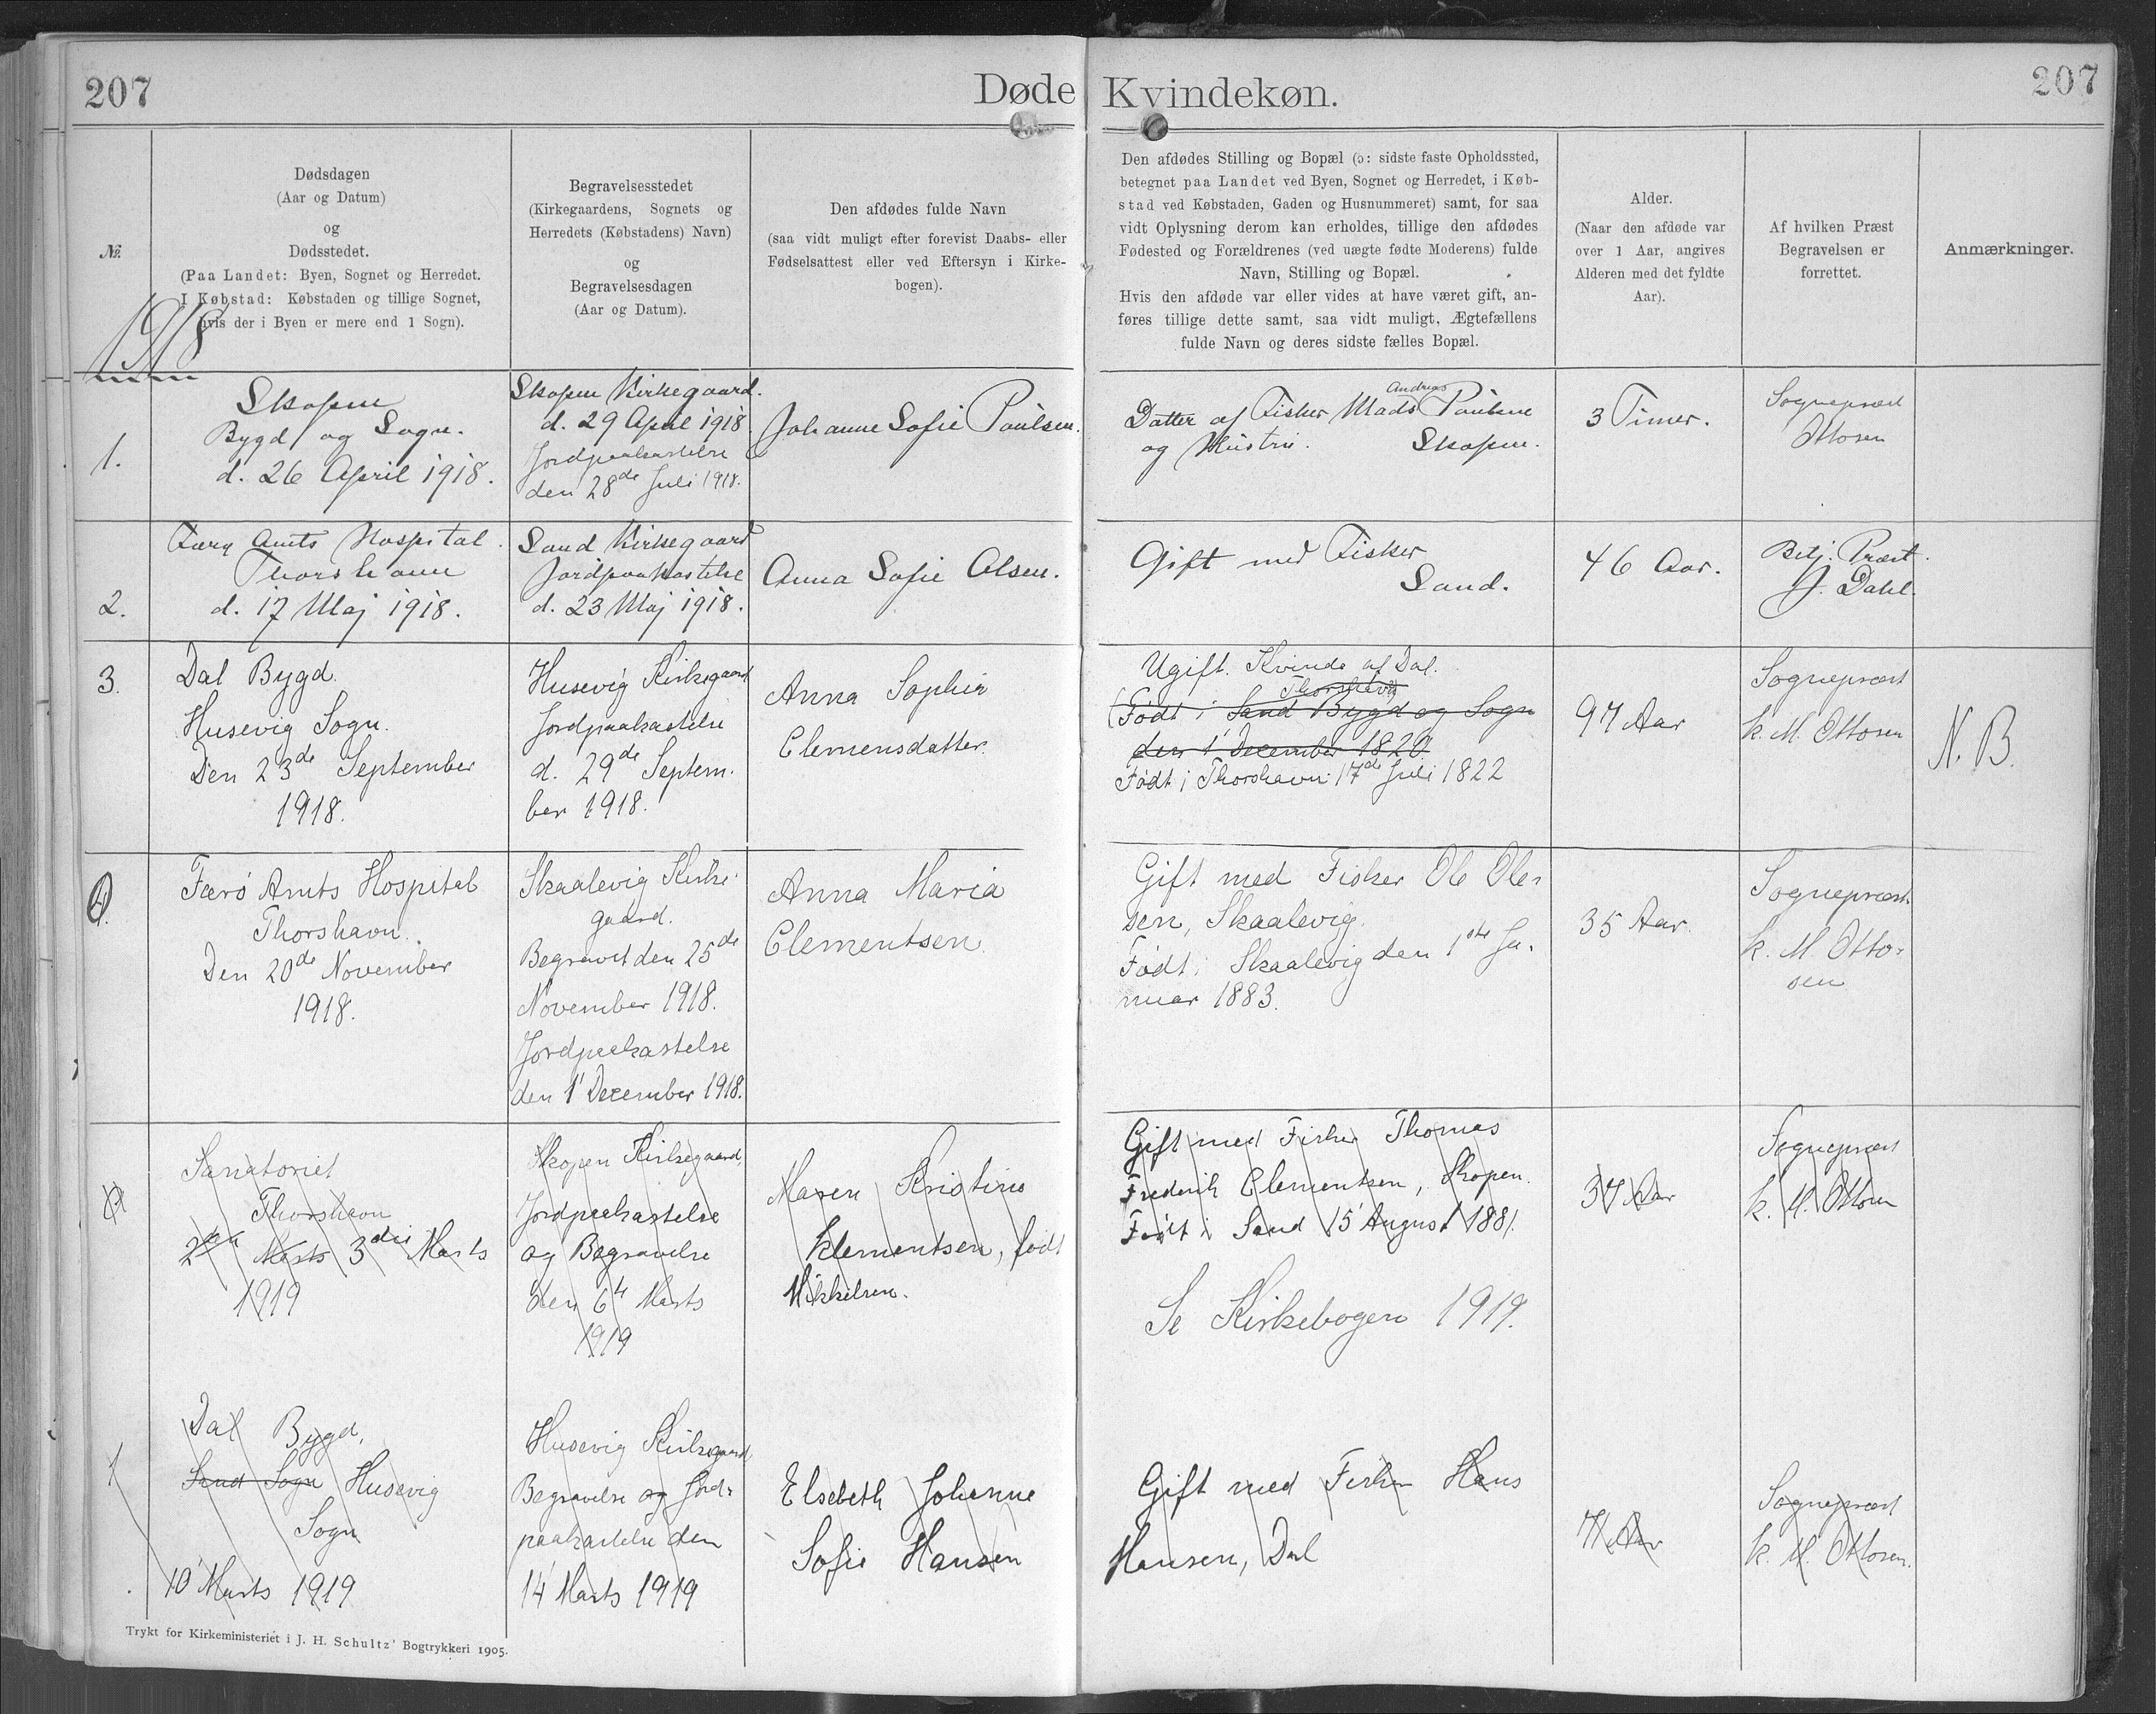 207
Døde
Kvindekøn.
207
№.
Dødsdagen
(Aar og Datum)
og
Dødsstedet.
(Paa Landet: Byen, Sognet og Herredet.
I Købstad: Købstaden og tillige Sognet,
hvis der i Byen er mere end 1 Sogn).
Begravelsesstedet
(Kirkegaardens, Sognets og
Herredets (Købstadens) Navn)
og
Begravelsesdagen
(Aar og Datum).
Den afdødes fulde Navn
(saa vidt muligt efter forevist Daabs- eller
Fødselsattest eller ved Eftersyn i Kirke-
bogen).
Den afdødes Stilling og Bopæl (ɔ: sidste faste Opholdssted,
betegnet paa Landet ved Byen, Sognet og Herredet, i Køb-
stad ved Købstaden, Gaden og Husnummeret) samt, for saa
vidt Oplysning derom kan erholdes, tillige den afdødes
Fødested og Forældrenes (ved uægte fødte Moderens) fulde
Navn, Stilling og Bopæl.
Hvis den afdøde var eller vides at have været gift, an-
føres tillige dette samt, saa vidt muligt, Ægtefællens
fulde Navn og deres sidste fælles Bopæl.
Alder.
(Naar den afdøde var
over 1 Aar, angives
Alderen med det fyldte
Aar).
Af hvilken Præst
Begravelsen er
forrettet.
Anmærkninger.
1918
1.
Skopen
Bygd og Sogn.
d. 26 April 1918.
Skopen Kirkegaard.
d. 29 April 1918
Jordpaakastelse
den 28de Juli 1918.
Johanne Sofie Poulsen.
Datter af Fisker Mads Andreas Poulsen
og Hustru. Skopen.
3 Timer.
Sognepræst
Ottosen
2.
Færø Amts Hospital
Thorshavn
d. 17 Maj 1918.
Sand Kirkegaard
Jordpaakastelse
d. 23 Maj 1918.
Anna Sofie Olsen.
Gift med Fisker
Sand.
46 Aar.
Betj. Præst.
J. Dahl.
3.
Dal Bygd.
Husevig Sogn.
Den 23de September
1918.
Husevig Kirkegaard
Jordpaakastelse
d. 29de Septem-
ber 1918.
Anna Sophia
Clemensdatter.
Ugift. Kvinde af Dal.
Thorshavn
(Født i Sand Bygd og Sogn
den 1' December 1820.
Født i Thorshavn 17de Juli 1822
97 Aar
Sognepræst
K. M. Ottosen
N. B.
4.
Færø Amts Hospital
Thorshavn.
Den 20de November
1918.
Skaalevig Kirke-
gaard.
Begravet den 25de
November 1918.
Jordpaakastelse
den 1' December 1918.
Anna Maria
Clementsen
Gift med Fisker Ole Ole-
sen, Skaalevig.
Født i Skaalevig den 1ste Ja-
nuar 1883.
35 Aar.
Sognepræst
K. M. Otto-
sen
Sanatoriet
Thorshavn
Marts 3die Marts
1919
Skopen Kirkegaard,
Jordpaakastelse
og Begravelse
den 6te Marts
1919
Maren Kristine
Klementsen, født
Mikkelsen.
Gift med Fisker Thomas
Frederik Clementsen, Skopen.
Født i Sand 15' August 1881.
37 Aar
Sognepræst
K. M. Ottosen
Se Kirkebogen 1919.
1
Dal Bygd,
Sand Sogn Husevig
Sogn
10' Marts 1919
Husevig Kirkegaard
Begravelse og Jord-
paakastelse den
14' Marts 1919
Elsebeth Johanne
Sofie Hansen
Gift med Fisker Hans
Hansen, Dal
71 Aar
Sognepræst
K. M. Ottosen.
Trykt for Kirkeministeriet i J. H. Schultz' Bogtrykkeri 1905.